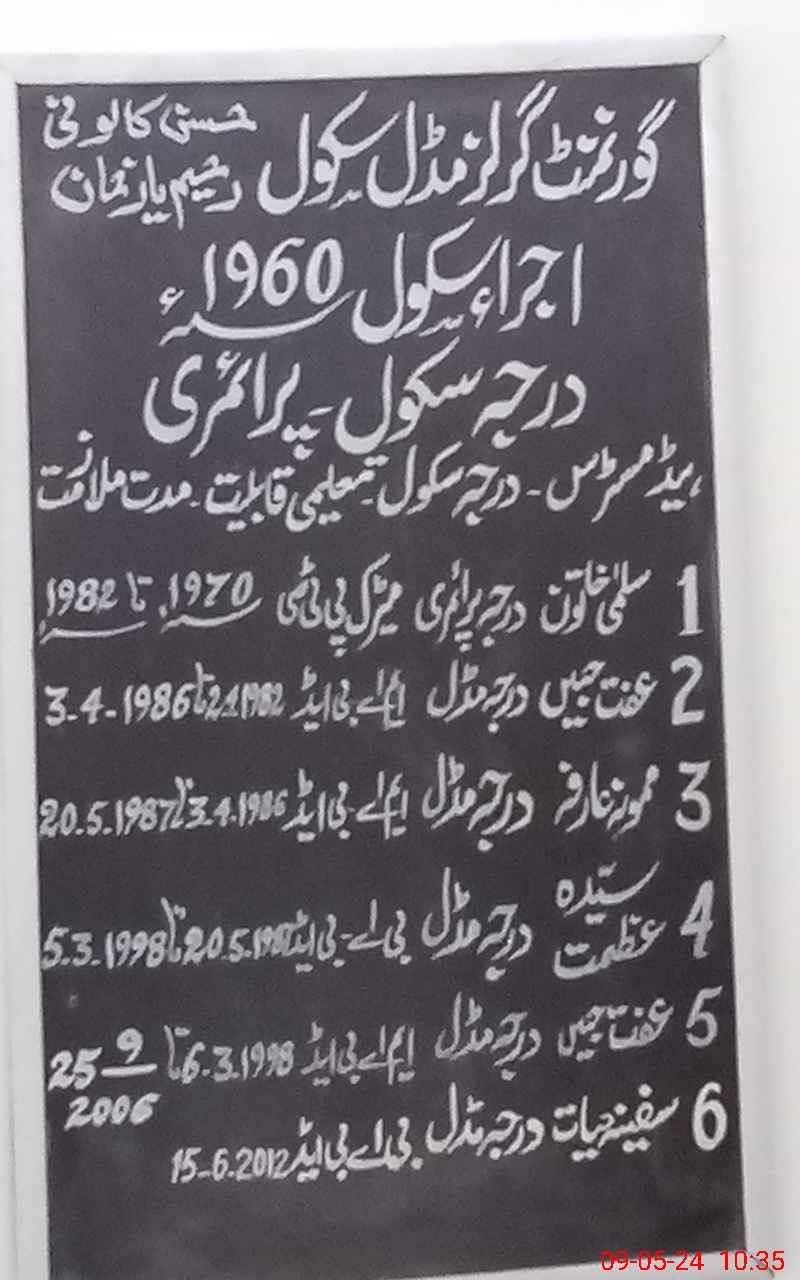 گورنمنٹ گرلز مڈل سکول حسنی کالونی رحیم یار خان
اجراء سکول 1960ء
درجہ سکول ۔ پرائمری
ہیڈ مسٹرس ۔ درجہ سکول ۔ تعلیمی قابلیت ۔ مدت ملازمت
1 سلمیٰ خاتون درجہ پرائمری میٹرک پی ٹی سی 1970ء تا 1982ء
2 عفت جبیں درجہ مڈل ایم اے بی ایڈ 2.1.1982 تا 3-4-1986
3 میمونہ عارفہ درجہ مڈل ایم اے ۔ بی ایڈ 3.4.1986 تا 20.5.1987
4 سیّدہ عظمت درجہ مڈل بی اے ۔ بی ایڈ 20.5.1987 تا 5.3.1998
5 عفت جبیں درجہ مڈل ایم اے بی ایڈ 6.3.1998 تا 25 9/2006
6 سفینہ حیات درجہ مڈل بی اے بی ایڈ 15-6.2012
09-05-24 10:35